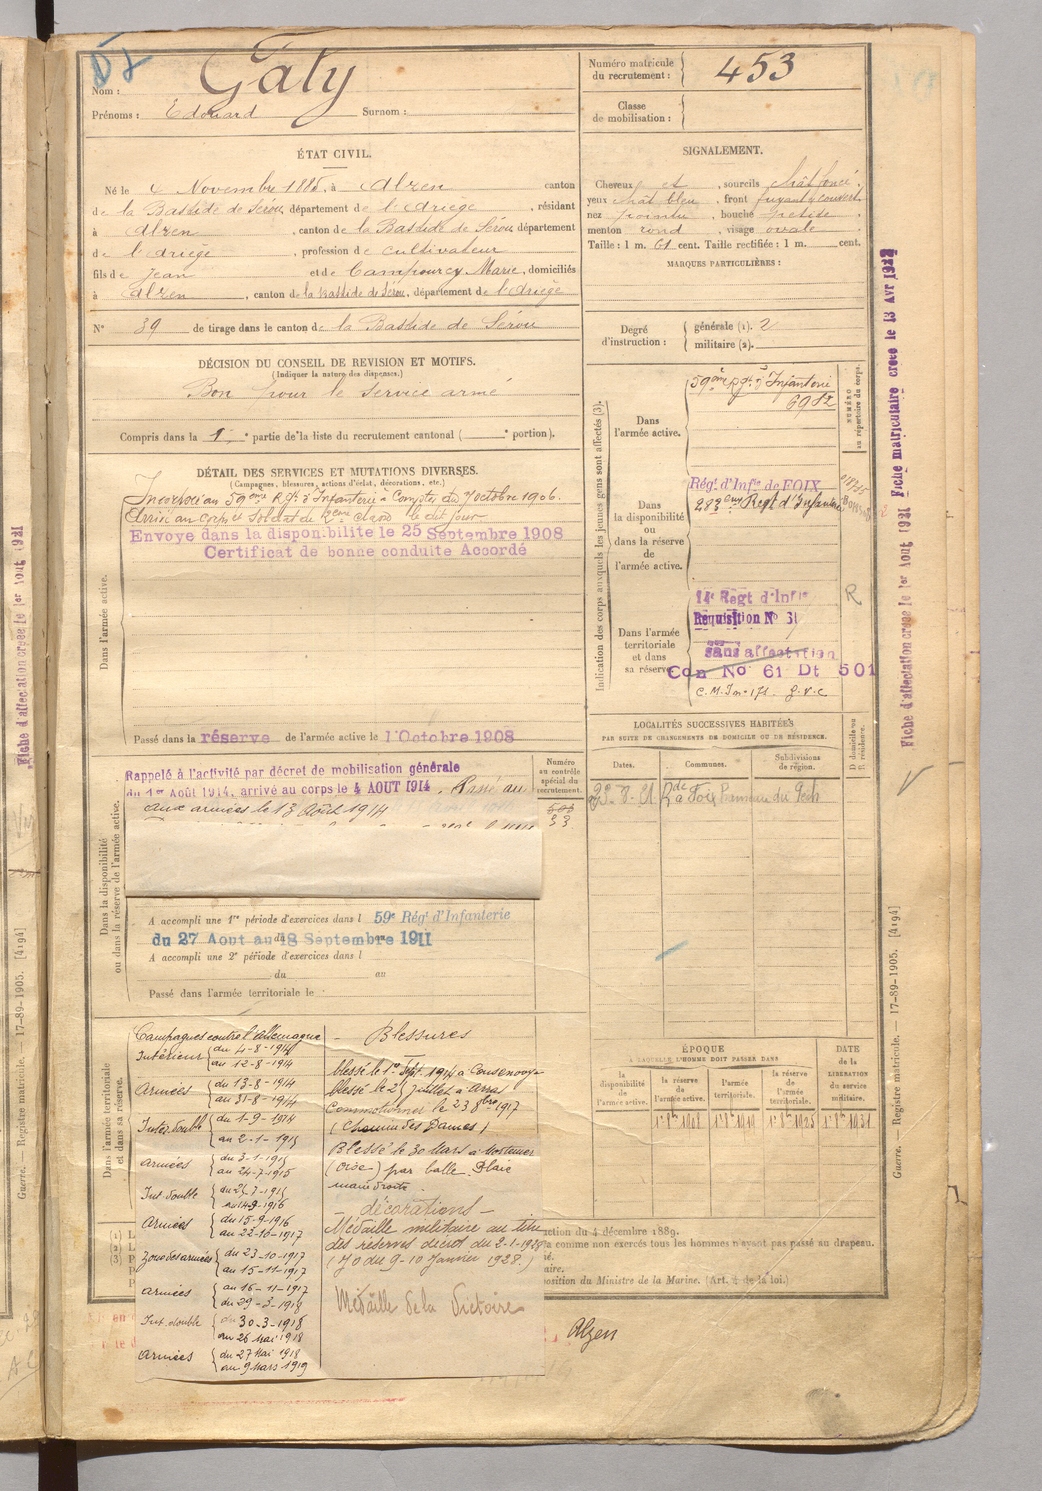 Nom : Gaty
Prénoms : Edouard Surnom :
Numéro matricule du recrutement : 453
Classe de mobilisation :
ÉTAT CIVIL.
Né le 4 Novembre 1885, à Alzen canton
de la Bastide de Sérou, département de l'Ariège, résidant
à Alzen, canton de la Bastide de Sérou département
de l'Ariège, profession de cultivateur
fils de Jean et de Campourcy Marie, domiciliés
à Alzen, canton de la Bastide de Sérou, département de l'Ariège
N° 39 de tirage dans le canton de la Bastide de Sérou
SIGNALEMENT.
Cheveux et , sourcils chât foncé.
yeux chât bleu, front fuyant couvert
nez pointu, bouche petite
menton rond, visage ovale
Taille : 1 m. 61 cent. Taille rectifiée : 1 m. cent.
MARQUES PARTICULIÈRES :
Degré d'instruction : générale (1). 2
militaire (2).
DÉCISION DU CONSEIL DE REVISION ET MOTIFS.
(Indiquer la nature des dispenses.)
Bon pour le service armé
Compris dans la 1e partie de la liste du recrutement cantonal ( e portion).
DÉTAIL DES SERVICES ET MUTATIONS DIVERSES.
(Campagnes, blessures, actions d'éclat, décorations, etc.)
Dans l'armée active.
Incorporé au 59ème Rgt d'Infanterie à Compter du 7 octobre 1906.
Arrivé au corps et soldat de 2ème classe le dit jour.
Envoye dans la disponibilite le 25 Septembre 1908
Certificat de bonne conduite Accordé
Passé dans la réserve de l'armée active le 1 Octobre 1908
Indication des corps auxquels les jeunes gens sont affectés (3).
NUMÉRO au répertoire du corps.
Dans l'armée active.
59ème Rgt d'Infanterie
6982
Dans la disponibilité ou dans la réserve de l'armée active.
Rég. d'Infie de FOIX
283eme Regt d'Infanterie
Dans l'armée territoriale et dans sa réserve
14e Regt d'Infie
Requisition N° 3
sans affectation
Con No 61 Dt 501
R
Dans la disponibilité ou dans la réserve de l'armée active.
Rappelé à l'activité par décret de mobilisation générale
du 1er Août 1914, arrivé au corps le 4 AOUT 1914. Passé au
aux armées le 13 Août 1914
Numéro au contrôle spécial du recrutement.
A accompli une 1re période d'exercices dans l 59e Rég. d'Infanterie
du 27 Aout au 18 Septembre 1911
A accompli une 2e période d'exercices dans l
du au
Passé dans l'armée territoriale le
LOCALITÉS SUCCESSIVES HABITÉES
PAR SUITE DE CHANGEMENTS DE DOMICILE OU DE RÉSIDENCE.
Dates. Communes. Subdivisions de région. D domicile ou R résidence.
Foix
ÉPOQUE
À LAQUELLE L'HOMME DOIT PASSER DANS
DATE de la LIBÉRATION du service militaire.
la disponibilité de l'armée active. la réserve de l'armée active. l'armée territoriale. la réserve de l'armée territoriale.
Dans l'armée territoriale et dans sa réserve.
Campagnes contre l'Allemagne
Intérieur du 4-8-1914
au 12-8-1914
Armées du 13-8-1914
au 31-8-1914
Int. double du 1-9-1914
au 2-1-1915
Armées du 3-1-1915
au 24-7-1915
Int. double du 25-7-1915
au 14-9-1916
Armées du 15-9-1916
au 22-10-1917
Zone des armées du 23-10-1917
au 15-11-1917
Armées au 16-11-1917
du 29-3-1918
Int. double du 30-3-1918
au 26 Mai 1918
Armées du 27 Mai 1918
au 9 Mars 1919
Blessures
blessé le 1er Sept. 1914 à Consenvoye
blessé le 2 juillet à Arras
Commotionné le 23 8bre 1917
(Chemin des Dames)
Blessé le 30 Mars à
(Oise) par balle. Plaie
main droite.
- décorations -
Médaille militaire au titre
des réserves décret du 2-1-1928
(J O du 9-10 Janvier 1928.)
Médaille de la Victoire
4 décembre 1889.
comme non exercés tous les hommes n'ayant pas passé au drapeau.
position du Ministre de la Marine. (Art. 4 de la loi.)
Alzen
Fiche matriculaire creee le 13 Avr
Fiche d'affectation creee le 1er Aout 1921
Guerre. — Registre matricule. — 17-89-1905. [4194]
Fiche d'affectation creee le 1er Aout 1921
Guerre. — Registre matricule. — 17-89-1905. [4194]